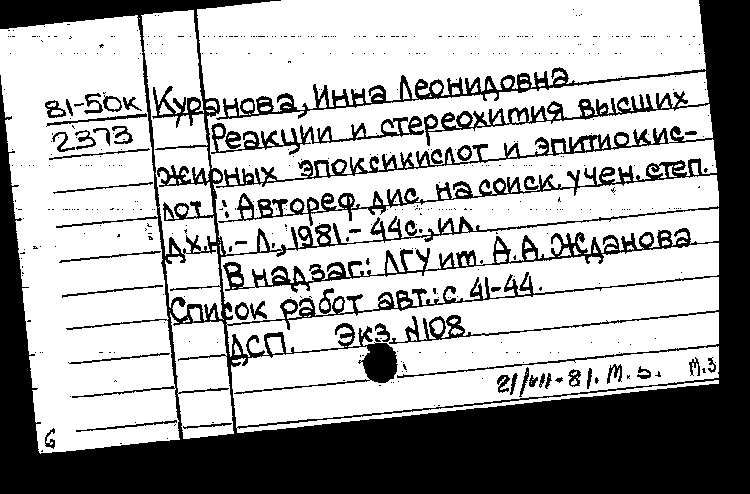 81-50к Куранова, Инна Леонидовна.
2373 Реакции и стереохимия высших
жирных эпоксикислот и эпитиокис-
лот.: Автореф. дис. на соиск. учен. степ.
д.х.н. - Л., 1981. - 44с., ил.
В надзаг.: ЛГУ им. А.А. Жданова.
Список работ авт.: с. 41-44.
ДСП. Экз. N108.
21/VII-81. М.
М.З